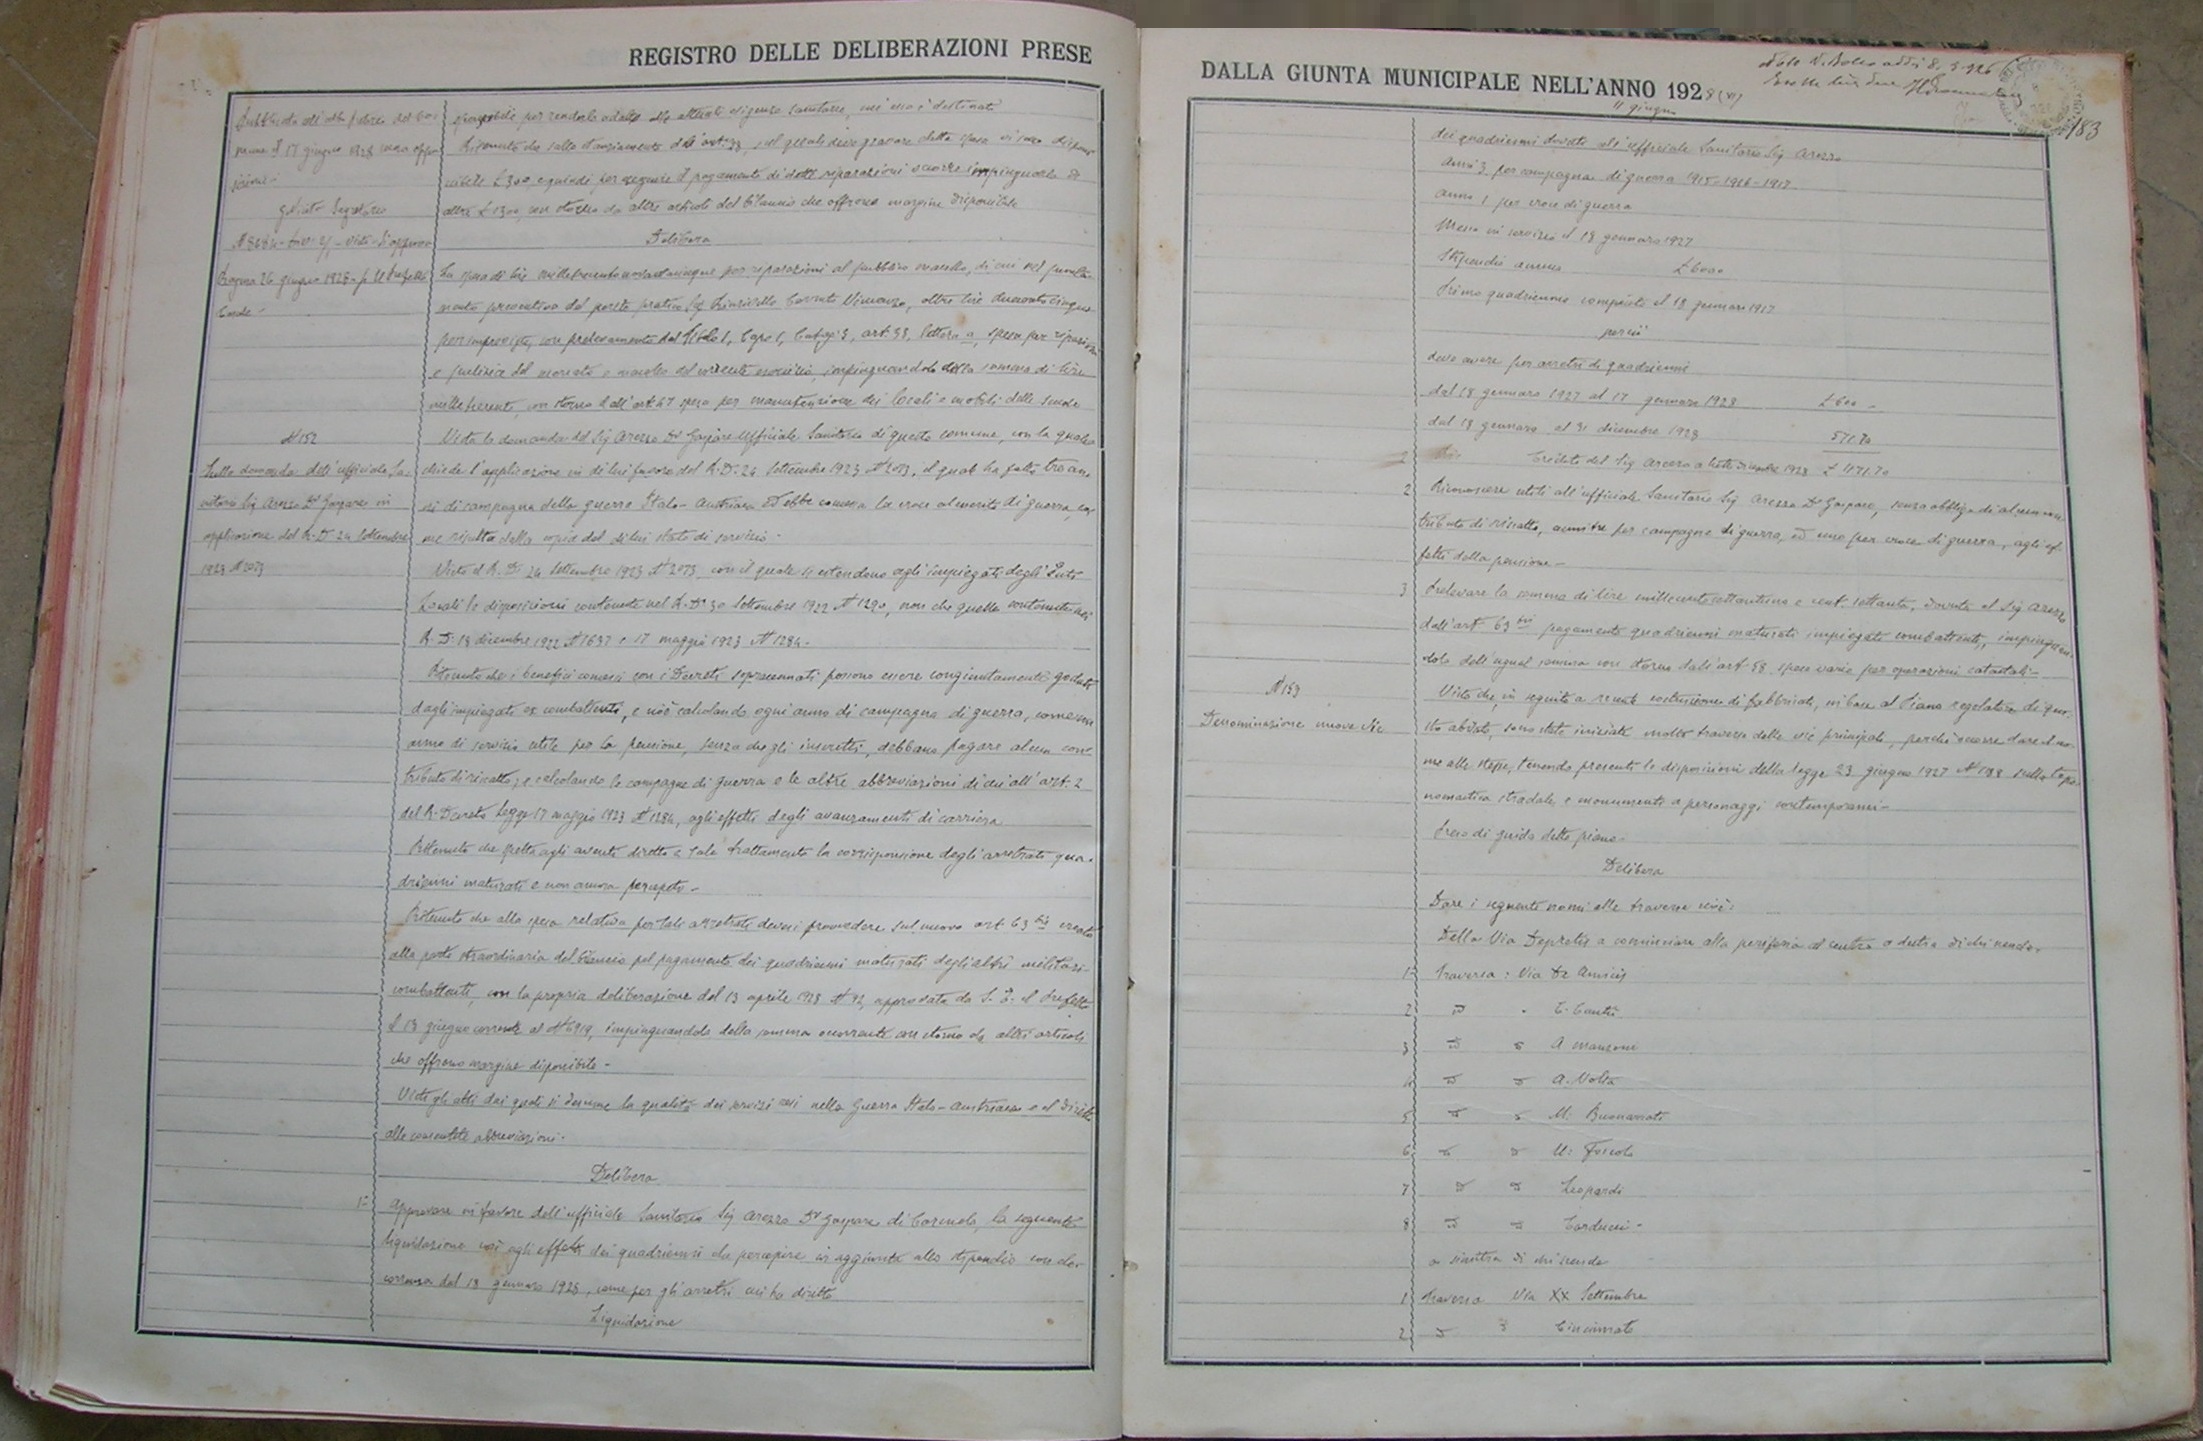 REGISTRO DELLE DELIBERAZIONI PRESE
Pubblicata all'albo pretorio del Co-
mune il 17 giugno 1928 senza oppo-
sizioni -
Segretario
Visto - Si approva
Ragusa 26 giugno 1928 - p. Il Prefetto
N 152
Sulla domanda dell'ufficiale Sa-
nitario Sig Arezzo Dr Gaspare in
applicazione del R. D. 24 Settembre
1923 N 2073
per renderlo adatto alle attuali esigenze sanitarie, cui esso è destinato
Ritenuto che sullo stanziamento dell'art. 33, sul quale deve gravare detta spesa vi sono dispo-
nibili £ 300, e quindi per eseguire il pagamento di dette riparazioni occorre impinguarlo di
altre £ 1300, con storno da altri articoli del bilancio che offrono margine disponibile
Delibera
La spesa di lire milletrecentonovantacinque per riparazioni al pubblico macello, di cui nel
preventivo del perito pratico Sig. Vincenzo, oltre lire duecentocinque
per impreviste, con prelevamento dal Titolo I, Capo I, Categ. 3, art. 33, lettera a, spesa per riparazioni
e pulizia del mercato e macello del corrente esercizio, impinguandolo della somma di lire
milletrecento, con storno dall'art 67 spesa per manutenzione dei locali e mobili delle scuole
Vista la domanda del Sig Arezzo Dr Gaspare Ufficiale Sanitario di questo comune, con la quale
chiede l'applicazione in di lui favore del R. D. 24 Settembre 1923 N 2073, il quale ha fatto tre an-
ni di campagna della guerra Italo-Austriaca ed ebbe concessa la croce al merito di guerra, co-
me risulta dalla copia del di lui stato di servizio -
Visto il R. D. 24 Settembre 1923 N 2073, con il quale si estendono agli impiegati degli Enti
Locali le disposizioni contenute nel R. D. 30 Settembre 1922 N 1290, non che quelle contenute nei
R. D. 18 dicembre 1922 N 1637 e 17 maggio 1923 N 1284 -
Ritenuto che i benefici concessi con i Decreti sopracennati possono essere congiuntamente goduti
dagli impiegati ex combattenti, e cioè calcolando ogni anno di campagna di guerra, come un
anno di servizio utile per la pensione, senza che gli interetti, debbano pagare alcun con-
tributo di riscatto; e calcolando le campagne di guerra e le altre abbreviazioni di cui all'art. 2
del R. Decreto Legge 17 maggio 1923 N 1284, agli effetti degli avanzamenti di carriera
Ritenuto che spetta agli aventi diritto a tale trattamento la corrisponsione degli arretrati qua-
drienni maturati e non ancora percepiti -
Ritenuto che alla spesa relativa per tali arretrati devesi provvedere sul nuovo art 63 bis creato
alla parte straordinaria del Bilancio pel pagamento dei quadrienni maturati degli altri militari
combattenti, con la propria deliberazione del 13 aprile 1928 N 92, approvata da S. E. il Prefetto
il 13 giugno corrente al N 6919, impinguandola della somma occorrente con storno da altri articoli
che offrono margine disponibile -
Visti gli atti dai quali si desume la qualità dei servizi resi nella Guerra Italo-austriaca e il diritto
alle consentite abbreviazioni -
Delibera
1° Approvare in favore dell'ufficiale Sanitario Sig Arezzo Dr Gaspare di Carmelo, la seguente
liquidazione così agli effetti dei quadrienni da percepire in aggiunta allo stipendio con de-
correnza dal 18 gennaro 1928, come per gli arretri cui ha diritto
Liquidazione
DALLA GIUNTA MUNICIPALE NELL'ANNO 1928 (VI)
11 giugno
183
dei quadrienni dovuti all'ufficiale Sanitario Sig Arezzo
Anni 3 per campagna di guerra 1915-1916-1917
anno 1 per croce di guerra
Messo in servizio il 18 gennaro 1927
Stipendio annuo £ 6000
Primo quadriennio compiuto il 18 gennaro 1927
perciò
deve avere per arretri di quadrienni
dal 18 gennaro 1927 al 17 gennaro 1928 £ 600 -
dal 18 gennaro al 31 dicembre 1928 571.70
Credito del Sig Arezzo a tutto dicembre 1928 £ 1171.70
2 Riconoscere utili all'ufficiale Sanitario Sig Arezzo Dr Gaspare, senza obbligo di alcun con-
tributo di riscatto, anni tre per campagne di guerra, ed uno per croce di guerra, agli ef-
fetti della pensione -
3 Prelevare la somma di lire millecentosettantuna e cent. settanta, dovuta al Sig Arezzo
dall'art 63 bis pagamento quadrienni maturati impiegati combattenti, impinguan-
dolo dell'ugual somma con storno dall'art 58 spese varie per operazioni catastali -
N 153
Denominazione nuove Vie
Visto che, in seguito a recente costruzione di fabbricati, in base al Piano regolatore di que-
sto abitato, sono state iniziate molte traverse delle vie principali, perchè occorre dare il no-
me alle stesse, tenendo presenti le disposizioni della legge 23 giugno 1927 N 1188 sulla topo-
nomastica stradale e monumenti a personaggi contemporanei -
Preso di guida detto piano -
Delibera
Dare i seguenti nomi alle traverse cioè:
Della Via Depretis a cominciare alla periferia al centro a destra di chi scende.
1° Traversa : Via De Amicis
2 " " C. Cantù
3 " " A Manzoni
4 " " A. Volta
5 " " M. Buonarroti
6 " " U. Foscolo
7 " " Leopardi
8 " " Carducci -
a sinistra di chi scende
1 Traversa Via XX Settembre
2 " " Cincinnato